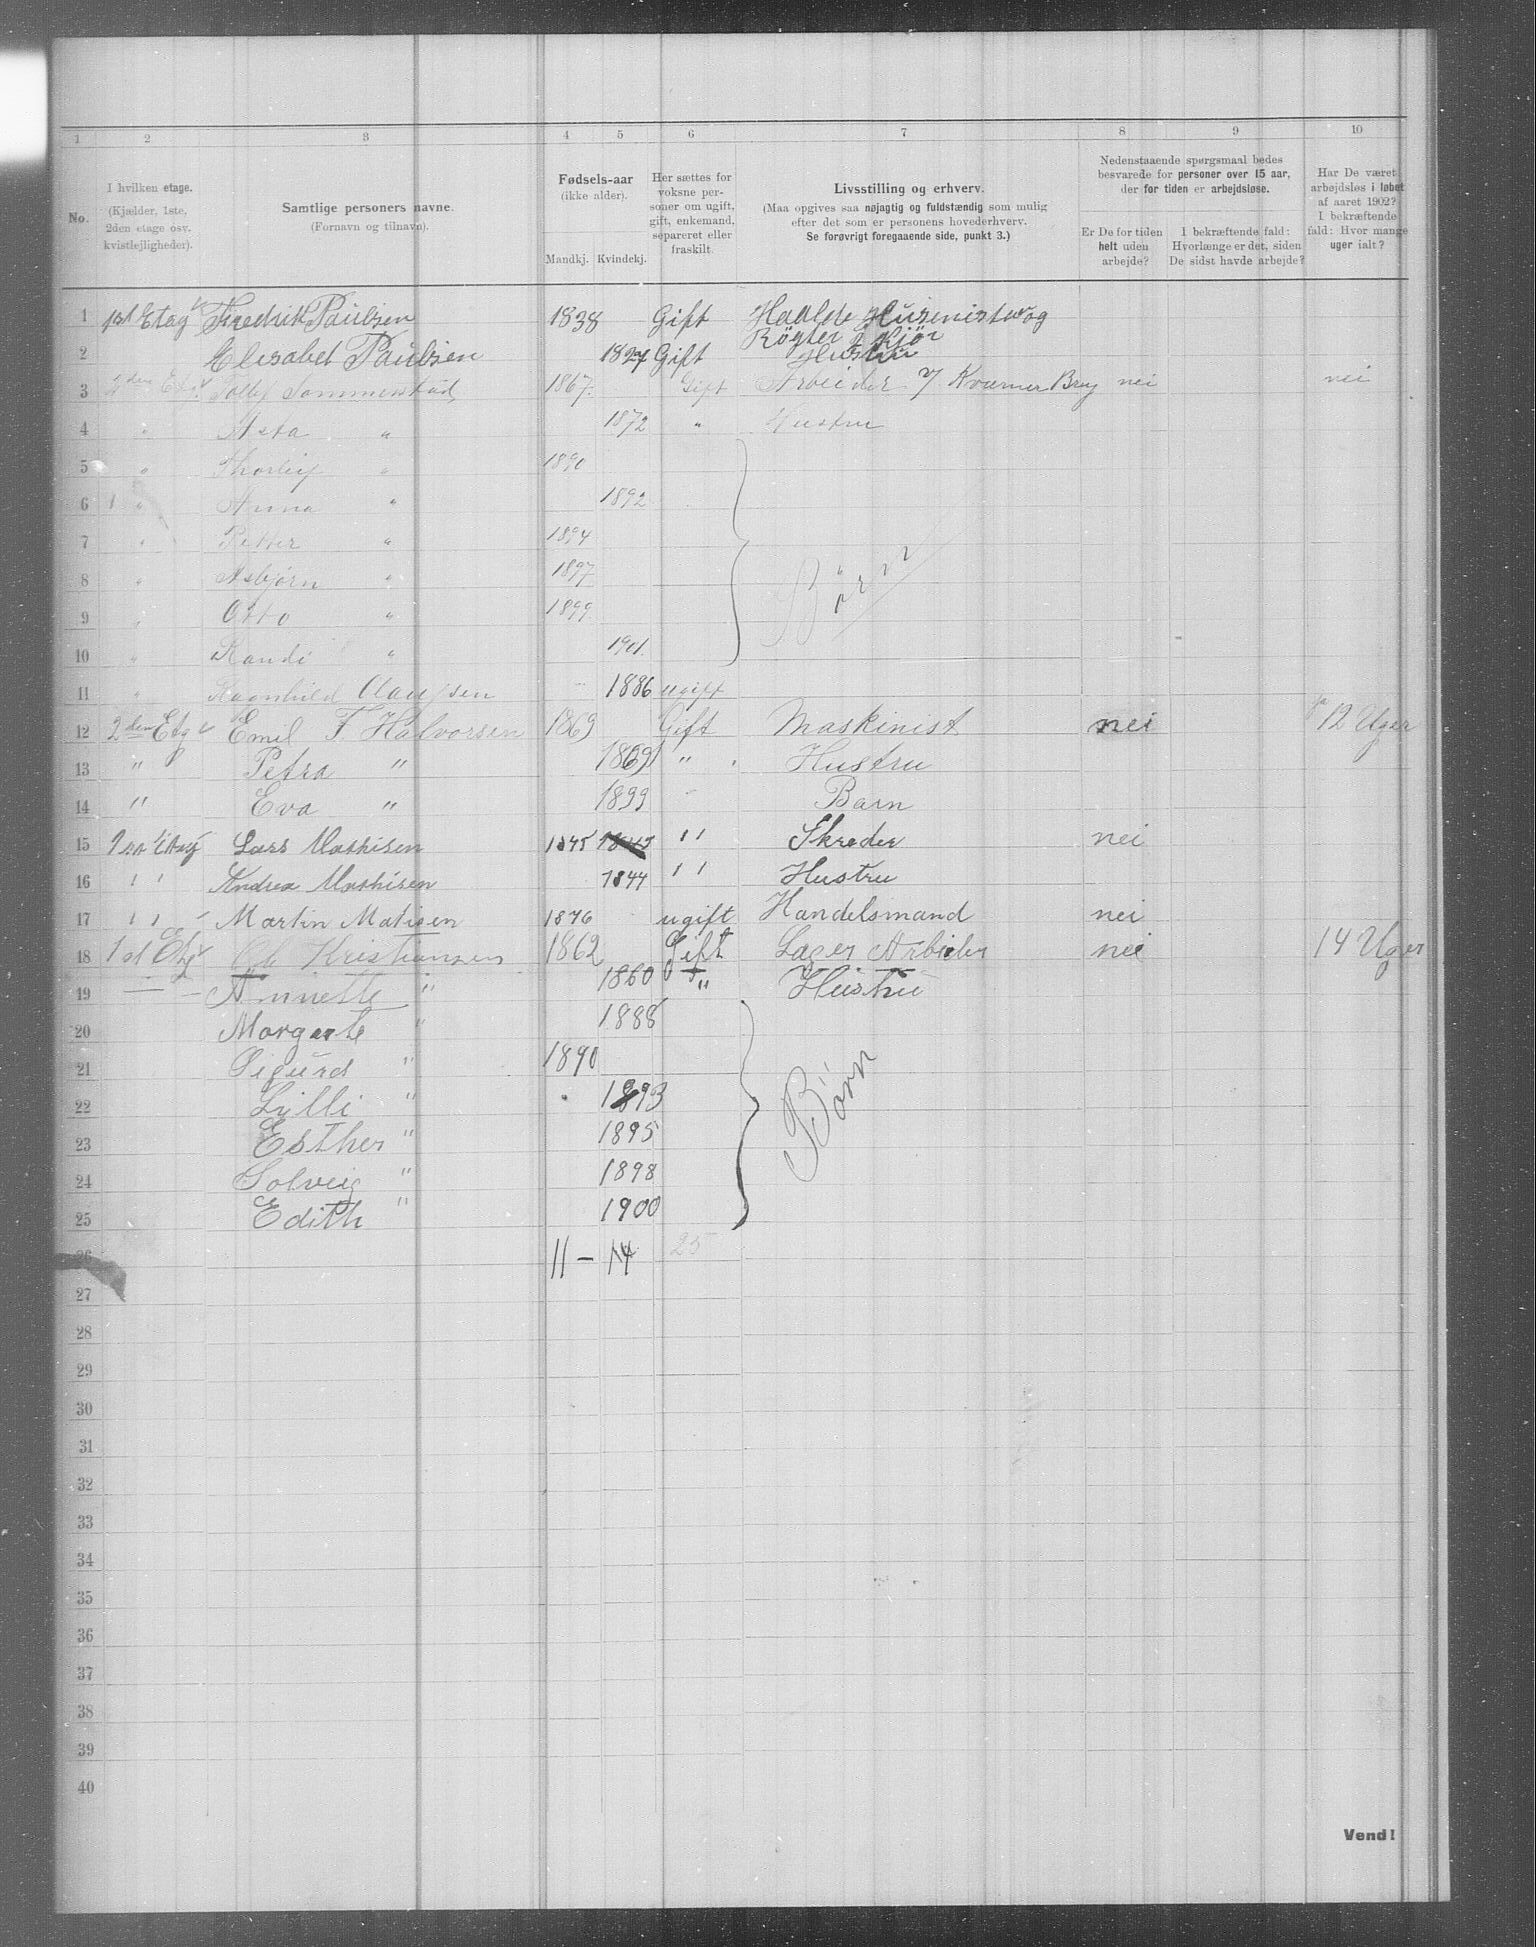 1 2 3 4 5 6 7 8 9 10
No.
I hvilken etage.
(Kjælder, 1ste,
2den etage osv.
kvistlejligheder).
Samtlige personers navne.
(Fornavn og tilnavn).
Fødsels-aar
(ikke alder).
Mandkj. Kvindekj.
Her sættes for
voksne per-
soner om ugift,
gift, enkemand,
separeret eller
fraskilt.
Livsstilling og erhverv.
(Maa opgives saa nøjagtig og fuldstændig som mulig
efter det som er personens hovederhverv.
Se forøvrigt foregaaende side, punkt 3.)
Nedenstaaende spørgsmaal bedes
besvarede for personer over 15 aar,
der for tiden er arbejdsløse.
Er De for tiden
helt uden
arbejde?
I bekræftende fald:
Hvorlænge er det, siden
De sidst havde arbejde?
Har De været
arbejdsløs i løbet
af aaret 1902?
I bekræftende
fald: Hvor mange
uger ialt?
1 1st Etag Fredrik Paulsen 1838 Gift
Røgter
2 Elisabet Paulsen 1827 Gift Hustru
3 2den Etg. Sommerstad 1867 Gift Arbeider Kværner Brug nei nei
4 " Asta " 1872 " Hustru
5 " Thorleif " 1890
6 " Anna " 1892
7 " Petter " 1894
8 " Asbjørn " 1897
9 " Otto " 1899
Børn
10 " Randi " 1901
11 " Ragnhild Olaussen 1886 ugift
12 2den Etg Emil F. Halvorsen 1869 Gift Maskinist nei ja 12 Uger
13 " Petra " 1869 " Hustru
14 " Eva " 1899 Barn
15 Lars Mathisen 1845 1845 " Skræder nei
16 " Andrea Mathisen 1844 " Hustru
17 " Martin Matisen 1876 ugift Handelsmand nei
18 1st Etg Kristiansen 1862 Gift Lager Arbider nei 14 Uger
19 Annette " 1860 " Hustru
20 Morgarete " 1888
21 Sigurd " 1890
22 Lilli " 1893
Børn
23 Esther " 1895
24 Solveig " 1898
25 Edith " 1900
26 11 – 14 25
27
28
29
30
31
32
33
34
35
36
37
38
39
40
Vend!